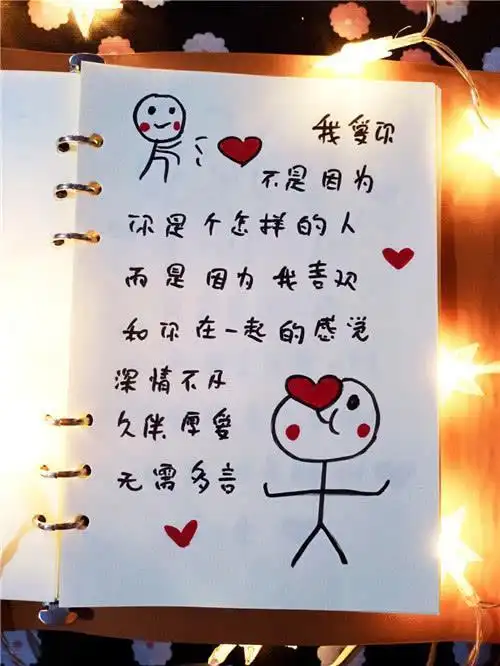 我爱你
不是因为
你是个怎样的人
而是因为我喜欢
和你在一起的感觉
深情不及
久伴厚爱
无需多言